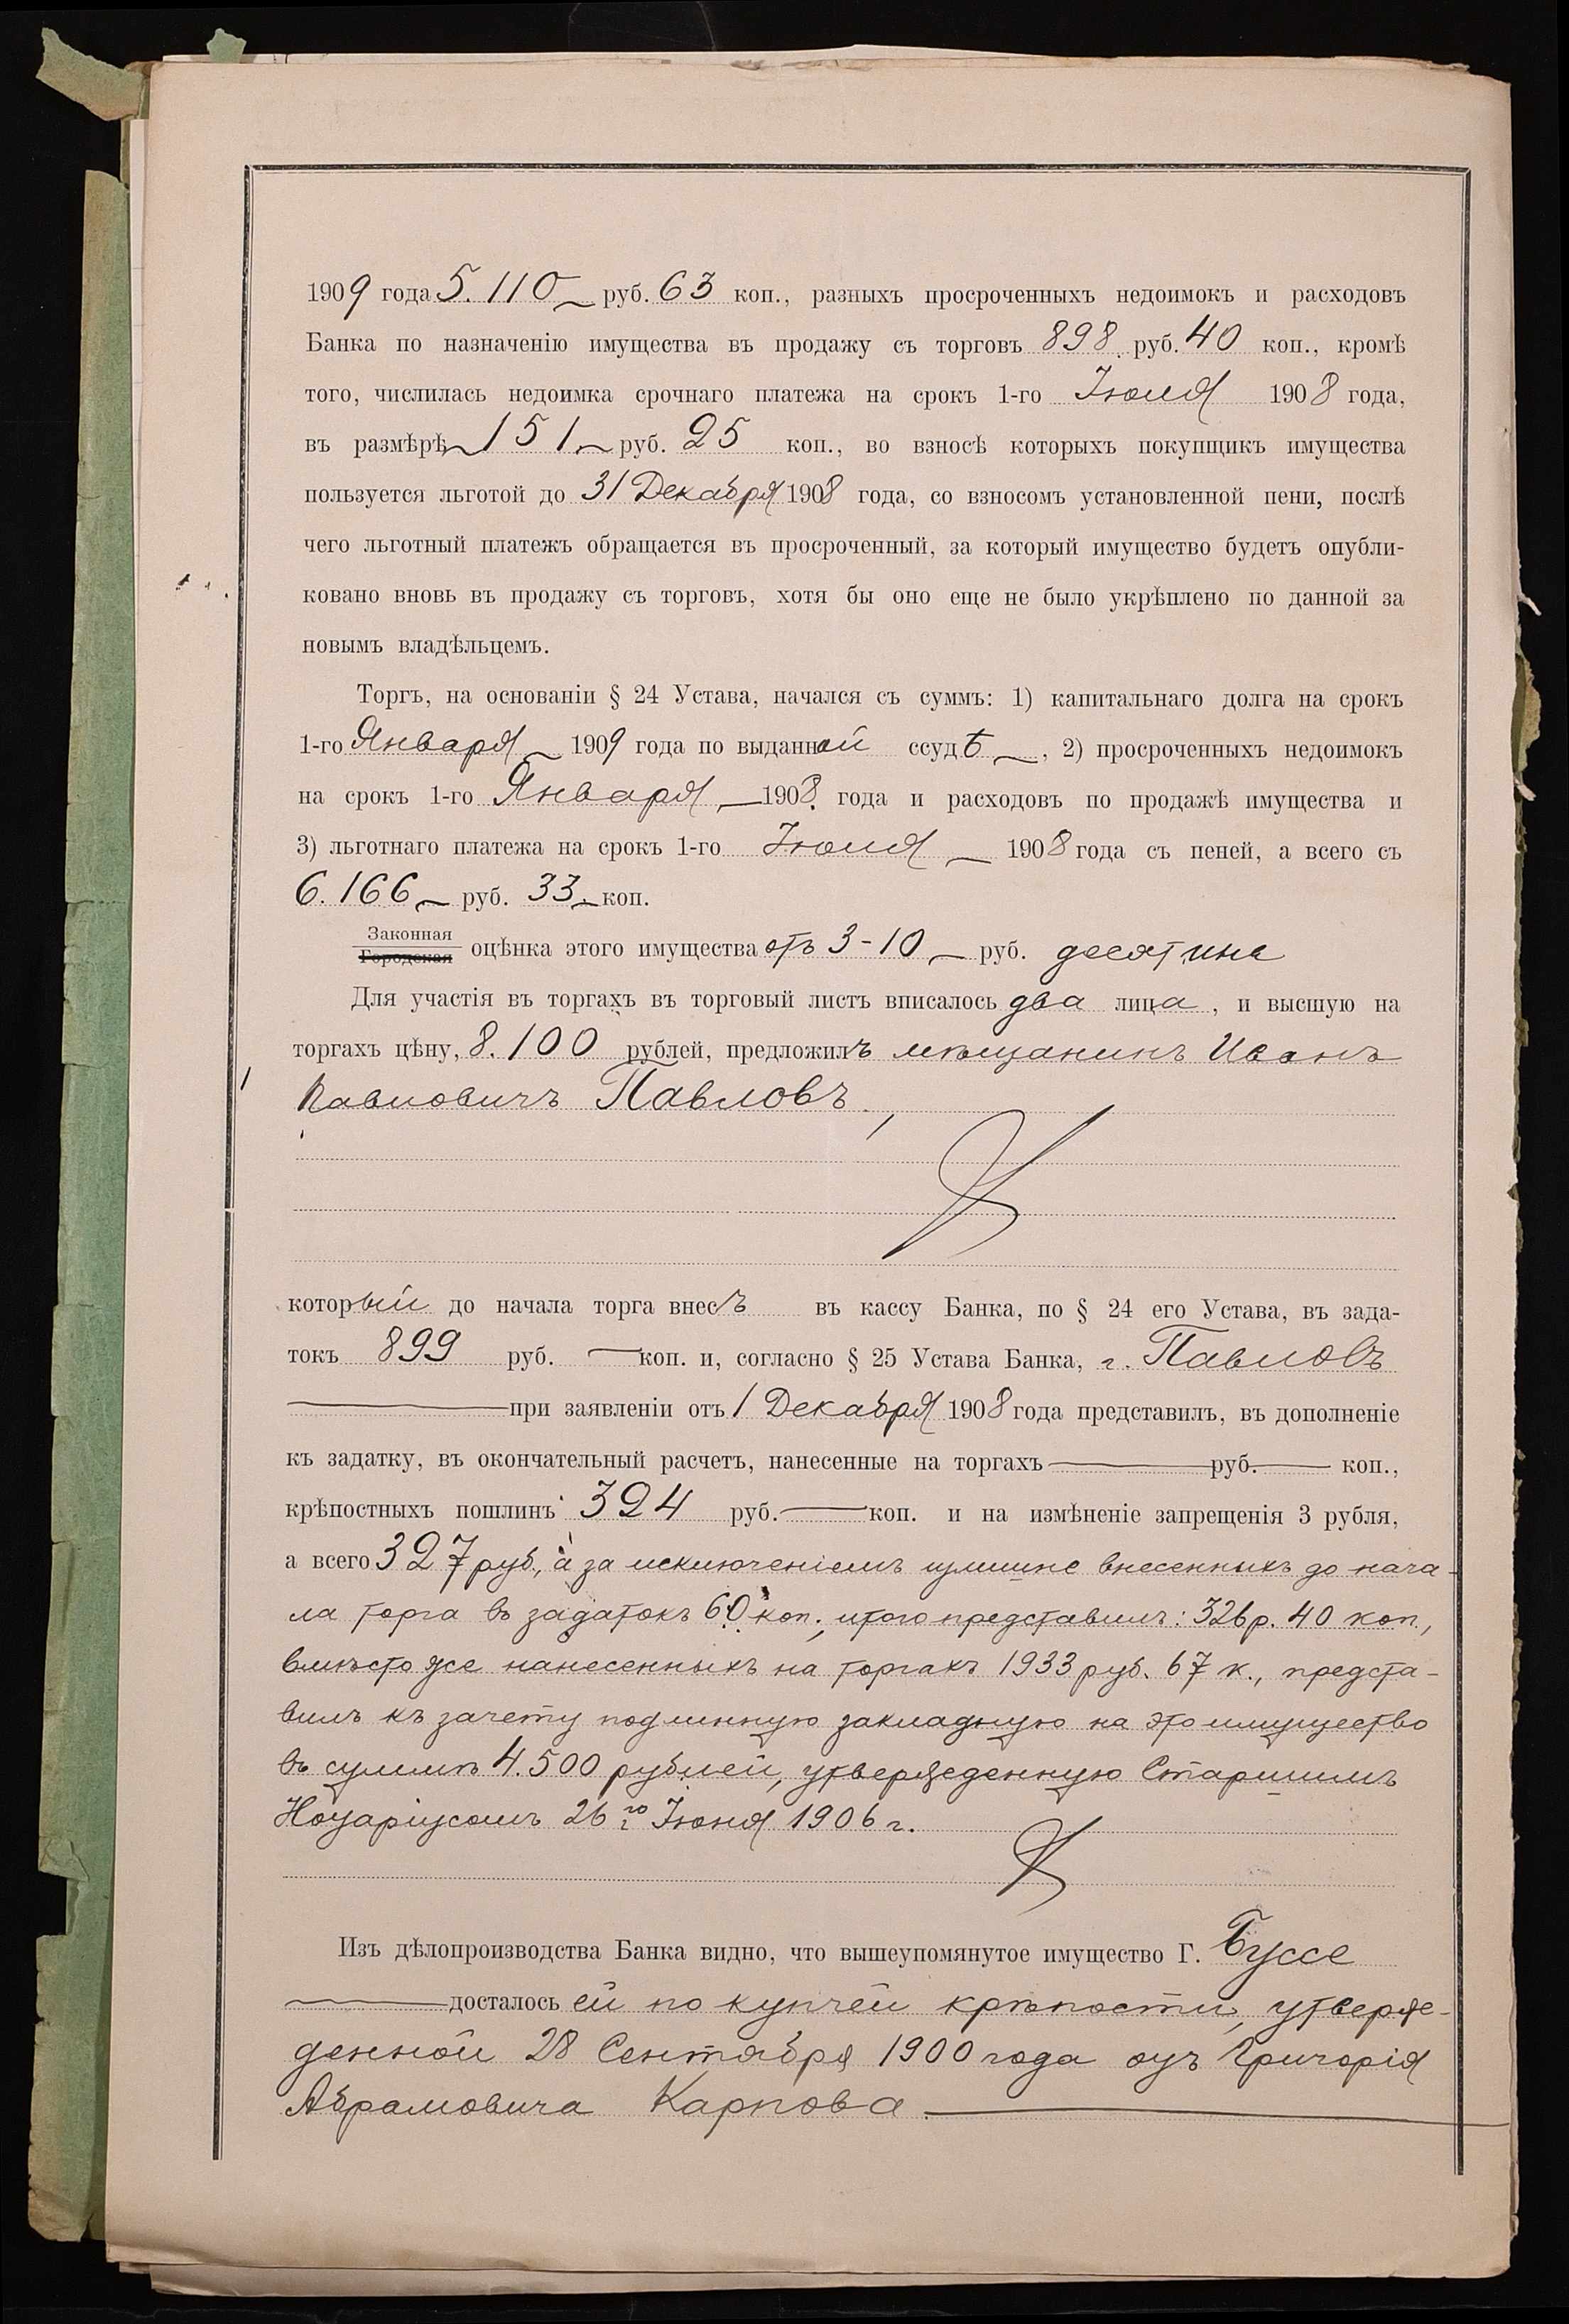 1909 года 5.110 руб. 63 коп., разныхъ просроченныхъ недоимокъ и расходовъ
Банка по назначенію имущества въ продажу съ торговъ 898 руб. 40 коп., кромѣ
того, числилась недоимка срочнаго платежа на срокъ 1-го Іюля 1908 года,
въ размѣрѣ 151 руб. 25 коп., во взносѣ которыхъ покупщикъ имущества
пользуется льготой до 31 Декабря 1908 года, со взносомъ установленной пени, послѣ
чего льготный платежъ обращается въ просроченный, за который имущество будетъ опубли-
ковано вновь въ продажу съ торговъ, хотя бы оно еще не было укрѣплено по данной за
новымъ владѣльцемъ.
Торгъ, на основаніи § 24 Устава, начался съ суммъ: 1) капитальнаго долга на срокъ
1-го Января 1909 года по выданной ссудѣ, 2) просроченныхъ недоимокъ
на срокъ 1-го Января 1908 года и расходовъ по продажѣ имущества и
3) льготнаго платежа на срокъ 1-го Іюля 1908 года съ пеней, а всего съ
6.166 руб. 33 коп.
Законная
Городская оцѣнка этого имущества отъ 3-10 руб. десятина
Для участія въ торгахъ въ торговый листъ вписалось два лица, и высшую на
торгахъ цѣну, 8.100 рублей, предложилъ мѣщанинъ Иванъ
Павловичъ Павловъ,
который до начала торга внесъ въ кассу Банка, по § 24 его Устава, въ зада-
токъ 899 руб. — коп. и, согласно § 25 Устава Банка, г. Павловъ
при заявленіи отъ 1 Декабря 1908 года представилъ, въ дополненіе
къ задатку, въ окончательный расчетъ, нанесенные на торгахъ — руб. — коп.,
крѣпостныхъ пошлинъ 324 руб. — коп. и на измѣненіе запрещенія 3 рубля,
а всего 327 руб., а за исключеніемъ излишне внесенныхъ до нача-
ла торга въ задатокъ 60 коп., итого представилъ: 326 р. 40 коп.,
вмѣсто же нанесенныхъ на торгахъ 1933 руб. 67 к., предста-
вилъ къ зачету подлинную закладную на это имущество
въ суммѣ 4.500 рублей, утвержденную Старшимъ
Нотаріусомъ 26го Іюня 1906 г.
Изъ дѣлопроизводства Банка видно, что вышеупомянутое имущество Г. Буссе
досталось ей по купчей крѣпости, утверж-
денной 28 Сентября 1900 года отъ Григорія
Абрамовича Карпова